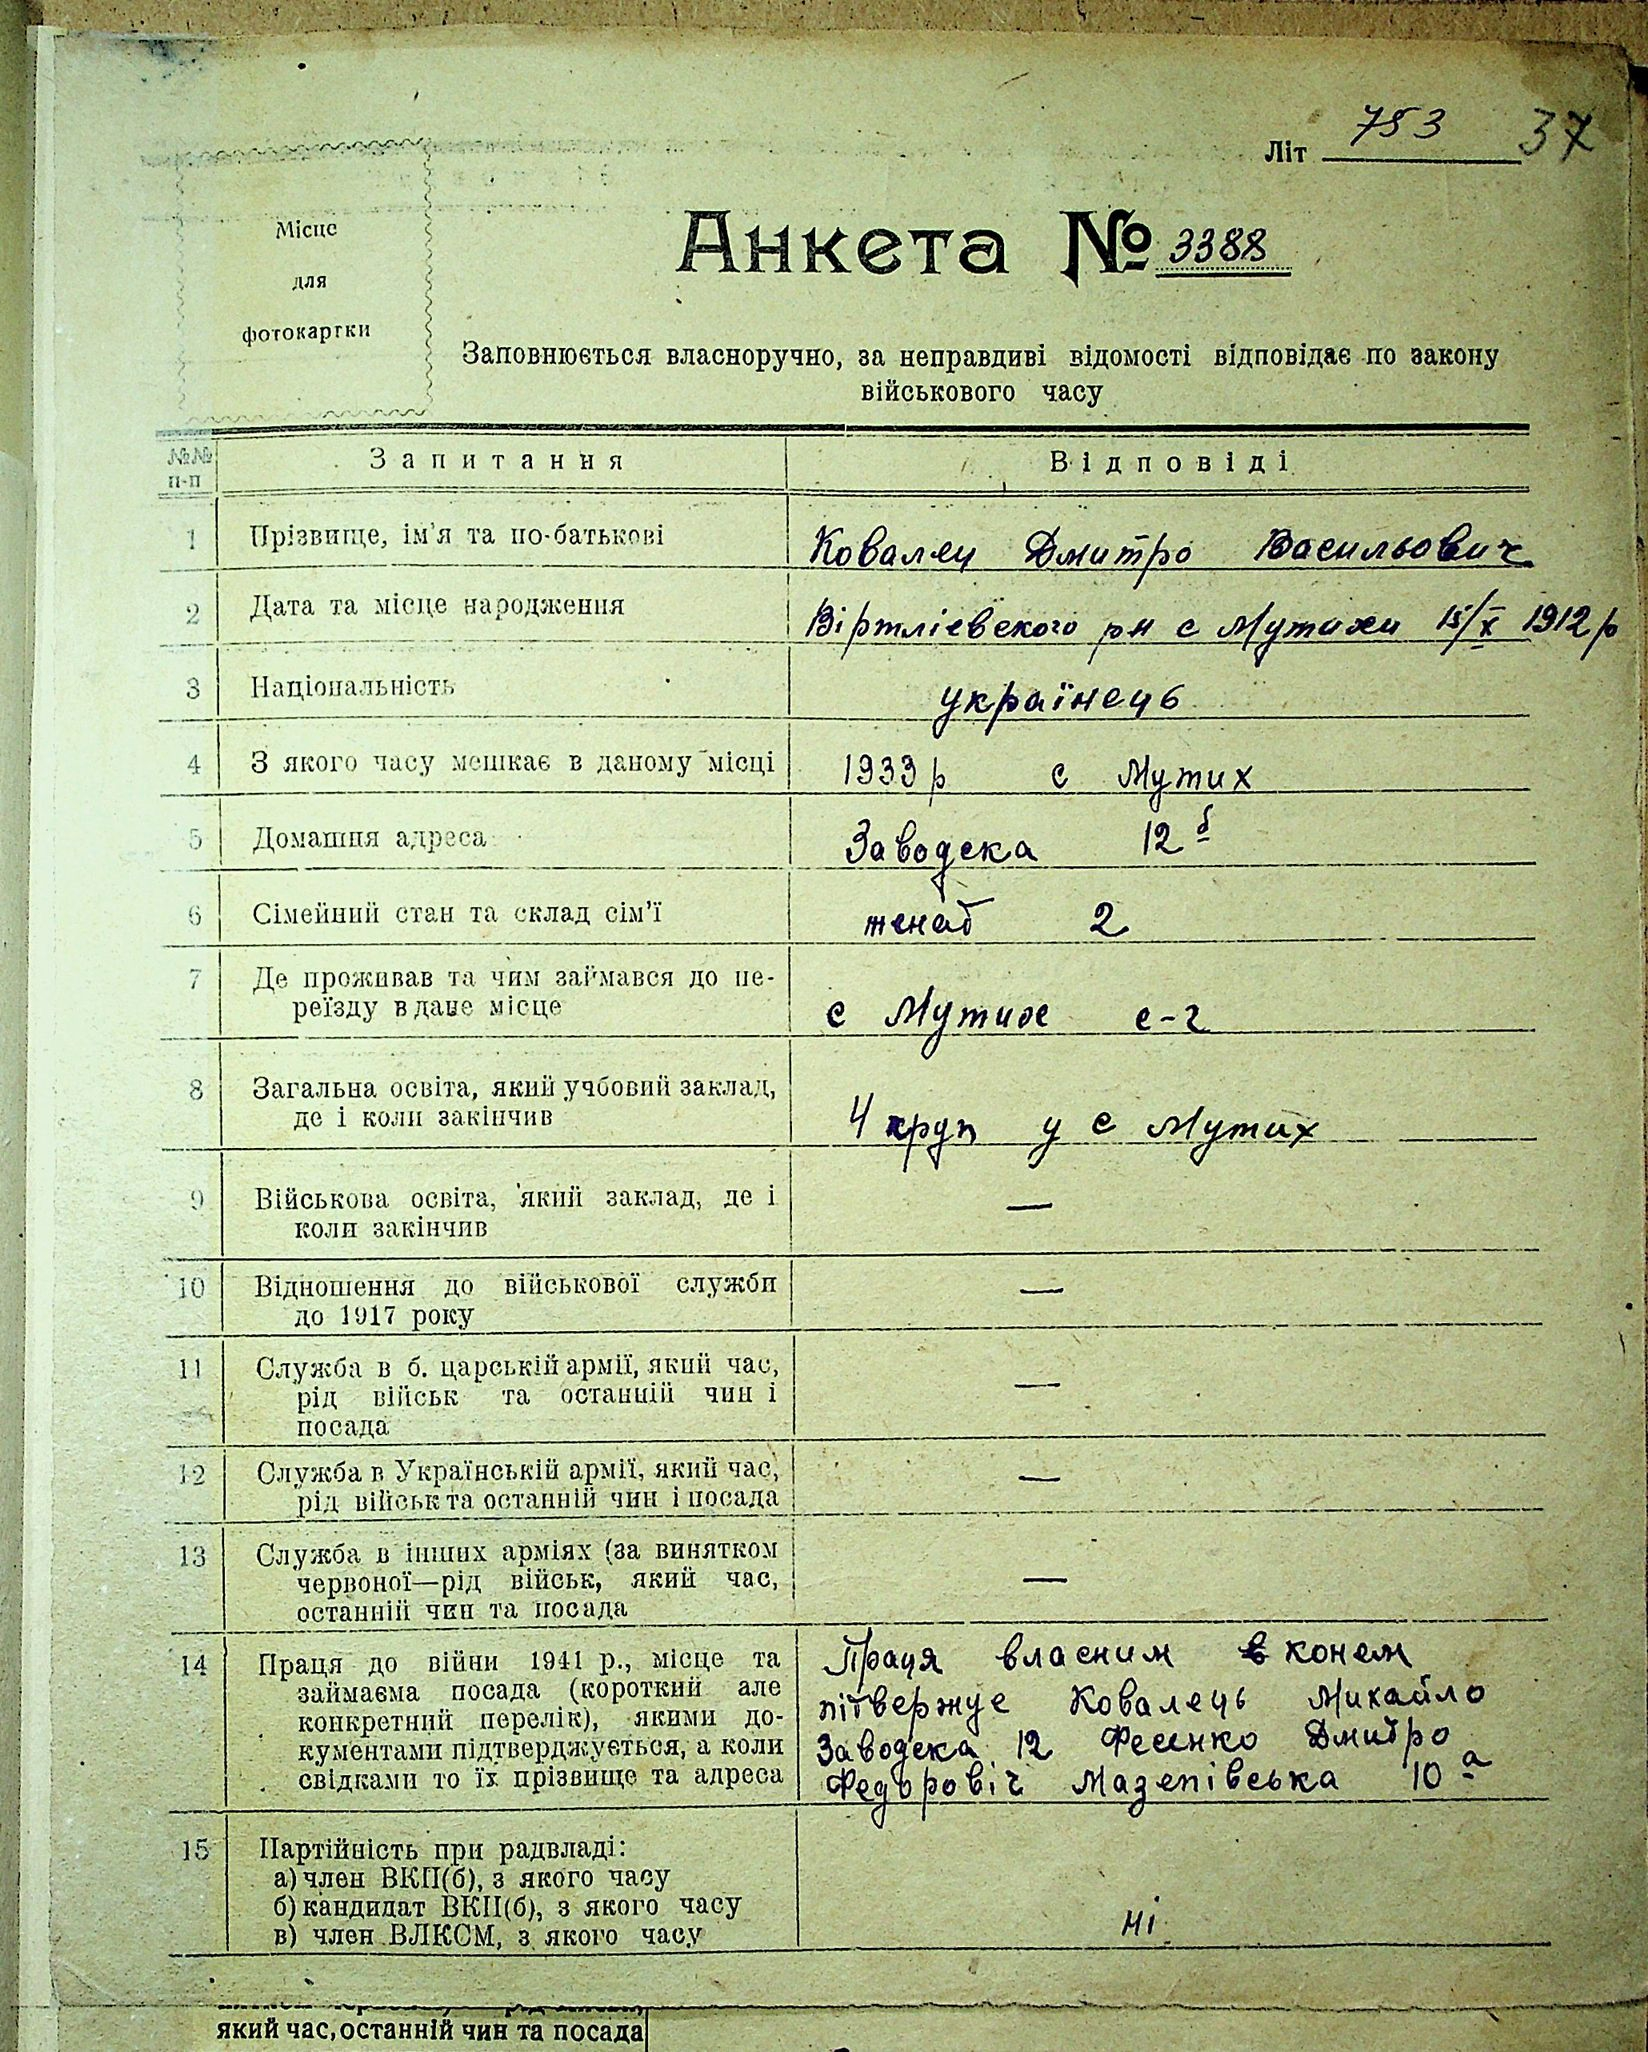 Літ 753 37
Місце
для
фотокартки
Анкета № 3388
Заповнюється власноручно, за неправдиві відомості відповідає по закону
військового часу
№№ п-п Запитання Відповіді
1 Прізвище, ім'я та по-батькові Ковалец Дмитро Васильович
2 Дата та місце народження Віртліевского рн с Мутихи 15/X 1912 р
3 Національність українець
4 З якого часу мешкає в даному місці 1933 р с Мутих
5 Домашня адреса Заводска 12 б
6 Сімейний стан та склад сім'ї женат 2
7 Де проживав та чим займався до пе-
реїзду в дане місце с Мутихе с-г
8 Загальна освіта, який учбовий заклад,
де і коли закінчив 4 груп у с Мутих
9 Військова освіта, який заклад, де і —
коли закінчив
10 Відношення до військової служби —
до 1917 року
11 Служба в б. царській армії, який час,
рід військ та останній чин і —
посада
12 Служба в Українській армії, який час, —
рід військ та останній чин і посада
13 Служба в інших арміях (за винятком
червоної—рід військ, який час, —
останній чин та посада
14 Праця до війни 1941 р., місце та Праця власним конем
займаєма посада (короткий але пітвержує Ковалець Михайло
конкретний перелік), якими до-
кументами підтверджується, а коли Заводска 12 Фесенко Дмитро
свідками то їх прізвище та адреса Федоровіч Мазепівська 10 а
15 Партійність при радвладі:
а) член ВКП(б), з якого часу
б) кандидат ВКП(б), з якого часу
в) член ВЛКСМ, з якого часу ні
який час, останній чин та посада